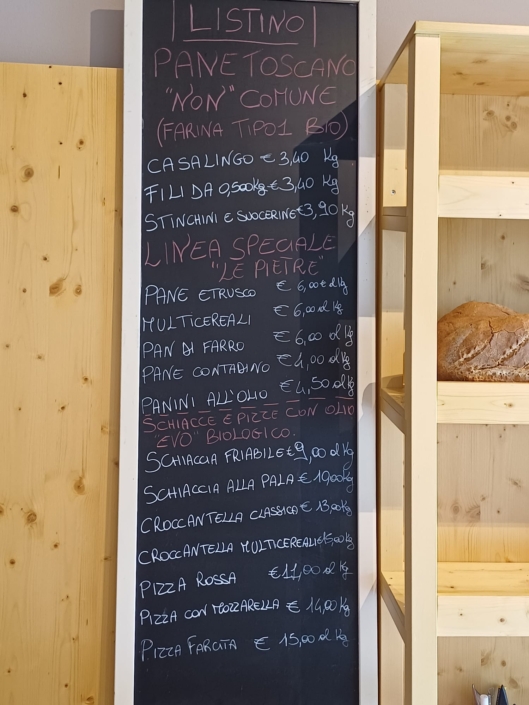 LISTINO
PANE TOSCANO
"NON" COMUNE
(FARINA TIPO 1 BIO)
CASALINGO € 3,40 Kg
FILI DA 0,500kg € 3,40 Kg
STINCHINI E SUOCERINE €3,90 Kg
LINEA SPECIALE
"LE PIETRE"
PANE ETRUSCO € 6,00 € al Kg
MULTICEREALI € 6,00 al Kg
PAN DI FARRO € 6,00 al Kg
PANE CONTADINO € 4,00 al Kg
PANINI ALL'OLIO € 4,50 al Kg
SCHIACCE E PIZZE CON OLIO
"EVO" BIOLOGICO.
SCHIACCIA FRIABILE € 9,00 al Kg
SCHIACCIA ALLA PALA € 10,00 Kg
CROCCANTELLA CLASSICA € 13,00 Kg
CROCCANTELLA MULTICEREALI €15,00 Kg
PIZZA ROSSA € 11,00 al Kg
PIZZA CON MOZZARELLA € 14,00 Kg
PIZZA FARCITA € 15,00 al Kg